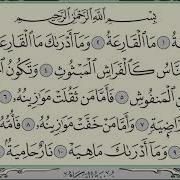 بِسْمِ ٱللَّهِ ٱلرَّحْمَٰنِ ٱلرَّحِيمِ
ةُ ١ مَا ٱلْقَارِعَةُ ٢ وَمَآ أَدْرَىٰكَ مَا ٱلْقَارِعَ
نَّاسُ كَٱلْفَرَاشِ ٱلْمَبْثُوثِ ٤ وَتَكُونُ ٱ
نِ ٱلْمَنفُوشِ ٥ فَأَمَّا مَن ثَقُلَتْ مَوَٰزِينُهُۥ ٦
اضِيَةٍ ٧ وَأَمَّا مَنْ خَفَّتْ مَوَٰزِينُهُۥ ٨ فَأُمُّهُۥ
٩ وَمَآ أَدْرَىٰكَ مَا هِيَهْ ١٠ نَارٌ حَامِيَةٌۢ ١١